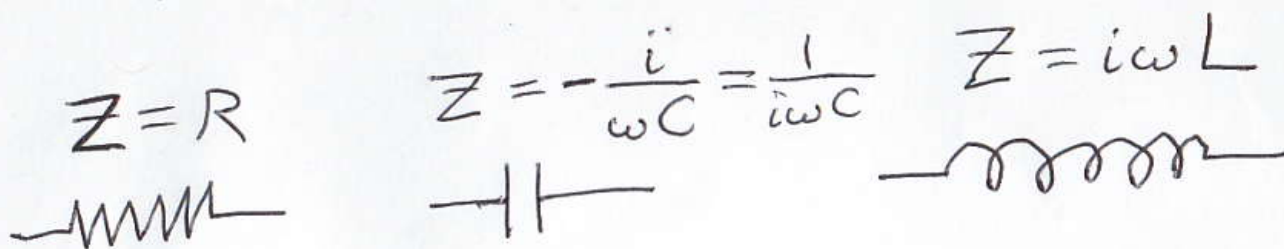 Z = R
Z = -i/ωC = 1/iωC
Z = iωL